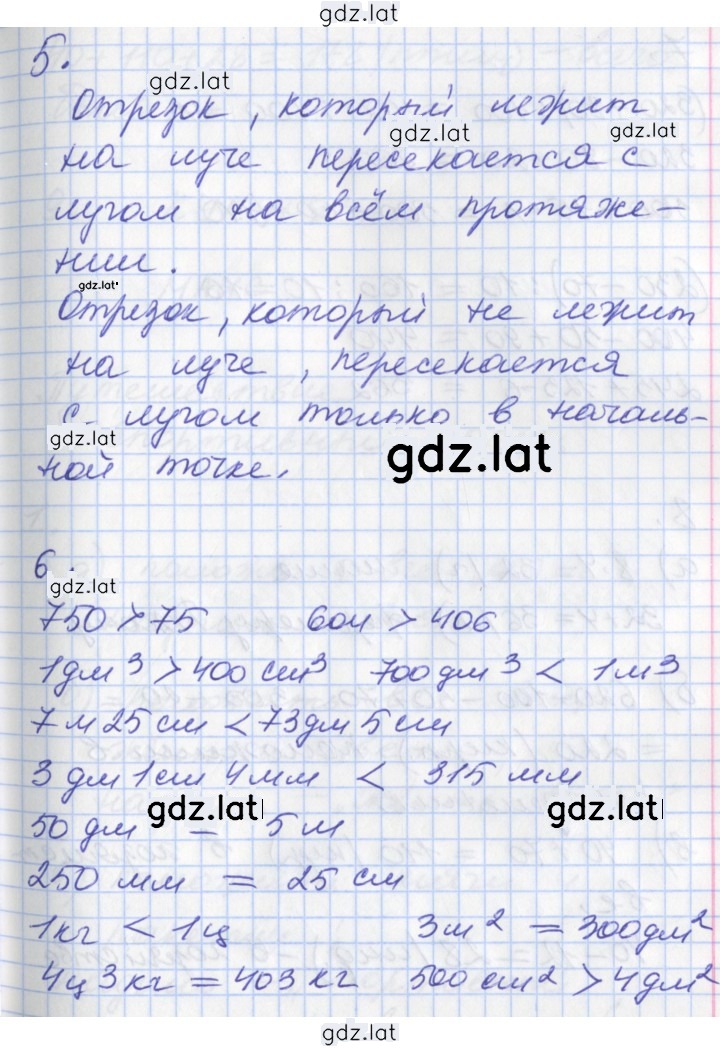 gdz.lat
5.
gdz.lat
Отрезок, который лежит
gdz.lat gdz.lat
на луче пересекается с
лугом на всём протяже-
нии.
gdz.lat
Отрезок, который не лежит
на луче, пересекается
с лугом только в началь-
gdz.lat
ной точке.
gdz.lat
6.
gdz.lat
750 > 75 604 > 406
1 дм³ > 400 см³ 700 дм³ < 1 м³
7 м 25 см < 73 дм 5 см
3 дм 1 см 4 мм < 315 мм
gdz.lat gdz.lat
50 дм = 5 м
250 мм = 25 см
1 кг < 1 ц 3 м² = 300 дм²
4 ц 3 кг = 403 кг 500 см² > 4 дм²
gdz.lat